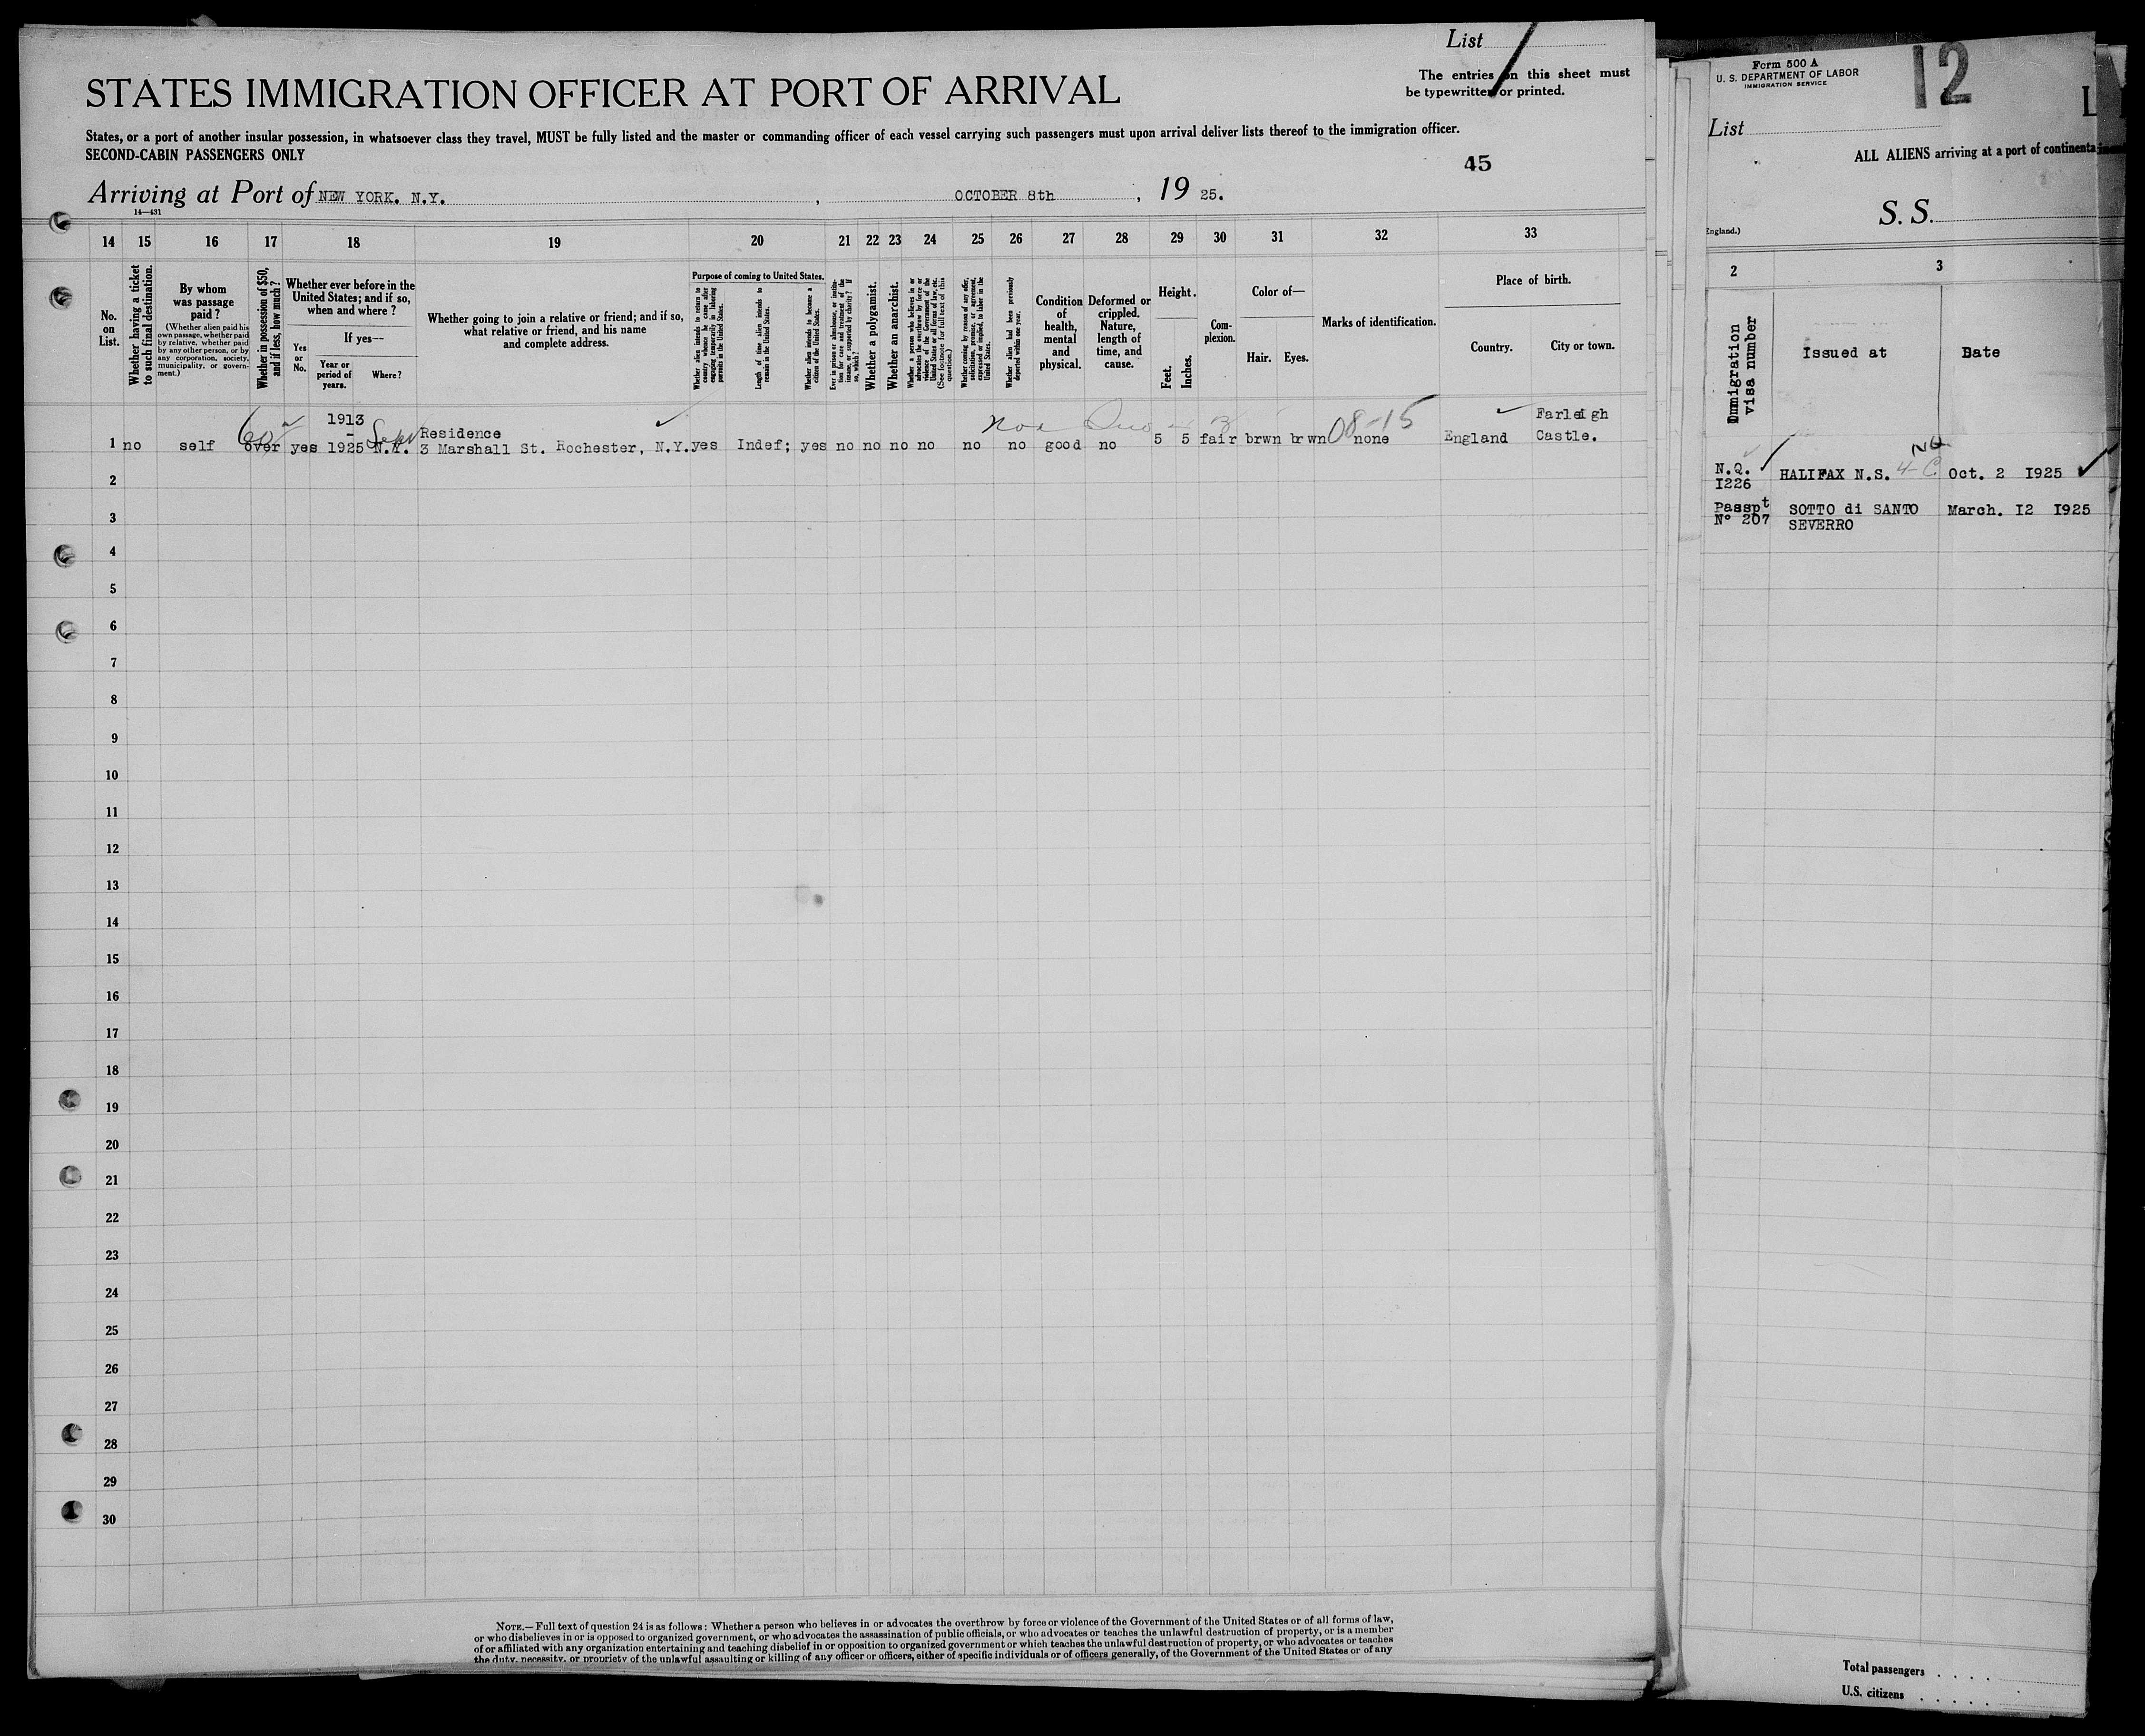 List
The entries on this sheet must
be typewritten or printed.
STATES IMMIGRATION OFFICER AT PORT OF ARRIVAL
States, or a port of another insular possession, in whatsoever class they travel, MUST be fully listed and the master or commanding officer of each vessel carrying such passengers must upon arrival deliver lists thereof to the immigration officer.
SECOND-CABIN PASSENGERS ONLY
45
Arriving at Port of NEW YORK. N.Y. , OCTOBER 8th , 19 25.
14—431
14 15 16 17 18 19 20 21 22 23 24 25 26 27 28 29 30 31 32 33
No. on List.
Whether having a ticket to such final destination.
By whom was passage paid?
(Whether alien paid his own passage, whether paid by relative, whether paid by any other person, or by any corporation, society, municipality, or government.)
Whether in possession of $50, and if less, how much?
Whether ever before in the United States; and if so, when and where?
Yes or No.
If yes—
Year or period of years.
Where?
Whether going to join a relative or friend; and if so, what relative or friend, and his name and complete address.
Purpose of coming to United States.
Whether alien intends to return to country whence he came after engaging temporarily in laboring pursuits in the United States.
Length of time alien intends to remain in the United States.
Whether alien intends to become a citizen of the United States.
Ever in prison or almshouse, or institution for care and treatment of the insane, or supported by charity? If so, which?
Whether a polygamist.
Whether an anarchist.
Whether a person who believes in or advocates the overthrow by force or violence of the Government of the United States or all forms of law, etc. (See footnote for full text of this question.)
Whether coming by reason of any offer, solicitation, promise, or agreement, expressed or implied, to labor in the United States.
Whether alien had been previously deported within one year.
Condition of health, mental and physical.
Deformed or crippled. Nature, length of time, and cause.
Height.
Feet. Inches.
Complexion.
Color of—
Hair. Eyes.
Marks of identification.
Place of birth.
Country. City or town.
1913 Farleigh
Residence 08-15
1 no self over yes 1925 N.Y. 3 Marshall St. Rochester, N.Y. yes Indef; yes no no no no no no good no 5 5 fair brwn brwn none England Castle.
2
3
4
5
6
7
8
9
10
11
12
13
14
15
16
17
18
19
20
21
22
23
24
25
26
27
28
29
30
NOTE.—Full text of question 24 is as follows: Whether a person who believes in or advocates the overthrow by force or violence of the Government of the United States or of all forms of law,
or who disbelieves in or is opposed to organized government, or who advocates the assassination of public officials, or who advocates or teaches the unlawful destruction of property, or is a member
of or affiliated with any organization entertaining and teaching disbelief in or opposition to organized government or which teaches the unlawful destruction of property, or who advocates or teaches
the duty, necessity, or propriety of the unlawful assaulting or killing of any officer or officers, either of specific individuals or of officers generally, of the Government of the United States or of any
Form 500 A
U. S. DEPARTMENT OF LABOR
IMMIGRATION SERVICE
12
L
List
ALL ALIENS arriving at a port of continenta
S. S.
England.)
2 3
Immigration visa number
Issued at Date
N.Q. HALIFAX N.S. 4-C Oct. 2 I925
I226
Passpt SOTTO di SANTO March. I2 I925
Nº 207 SEVERRO
Total passengers . . . .
U.S. citizens . . . . .